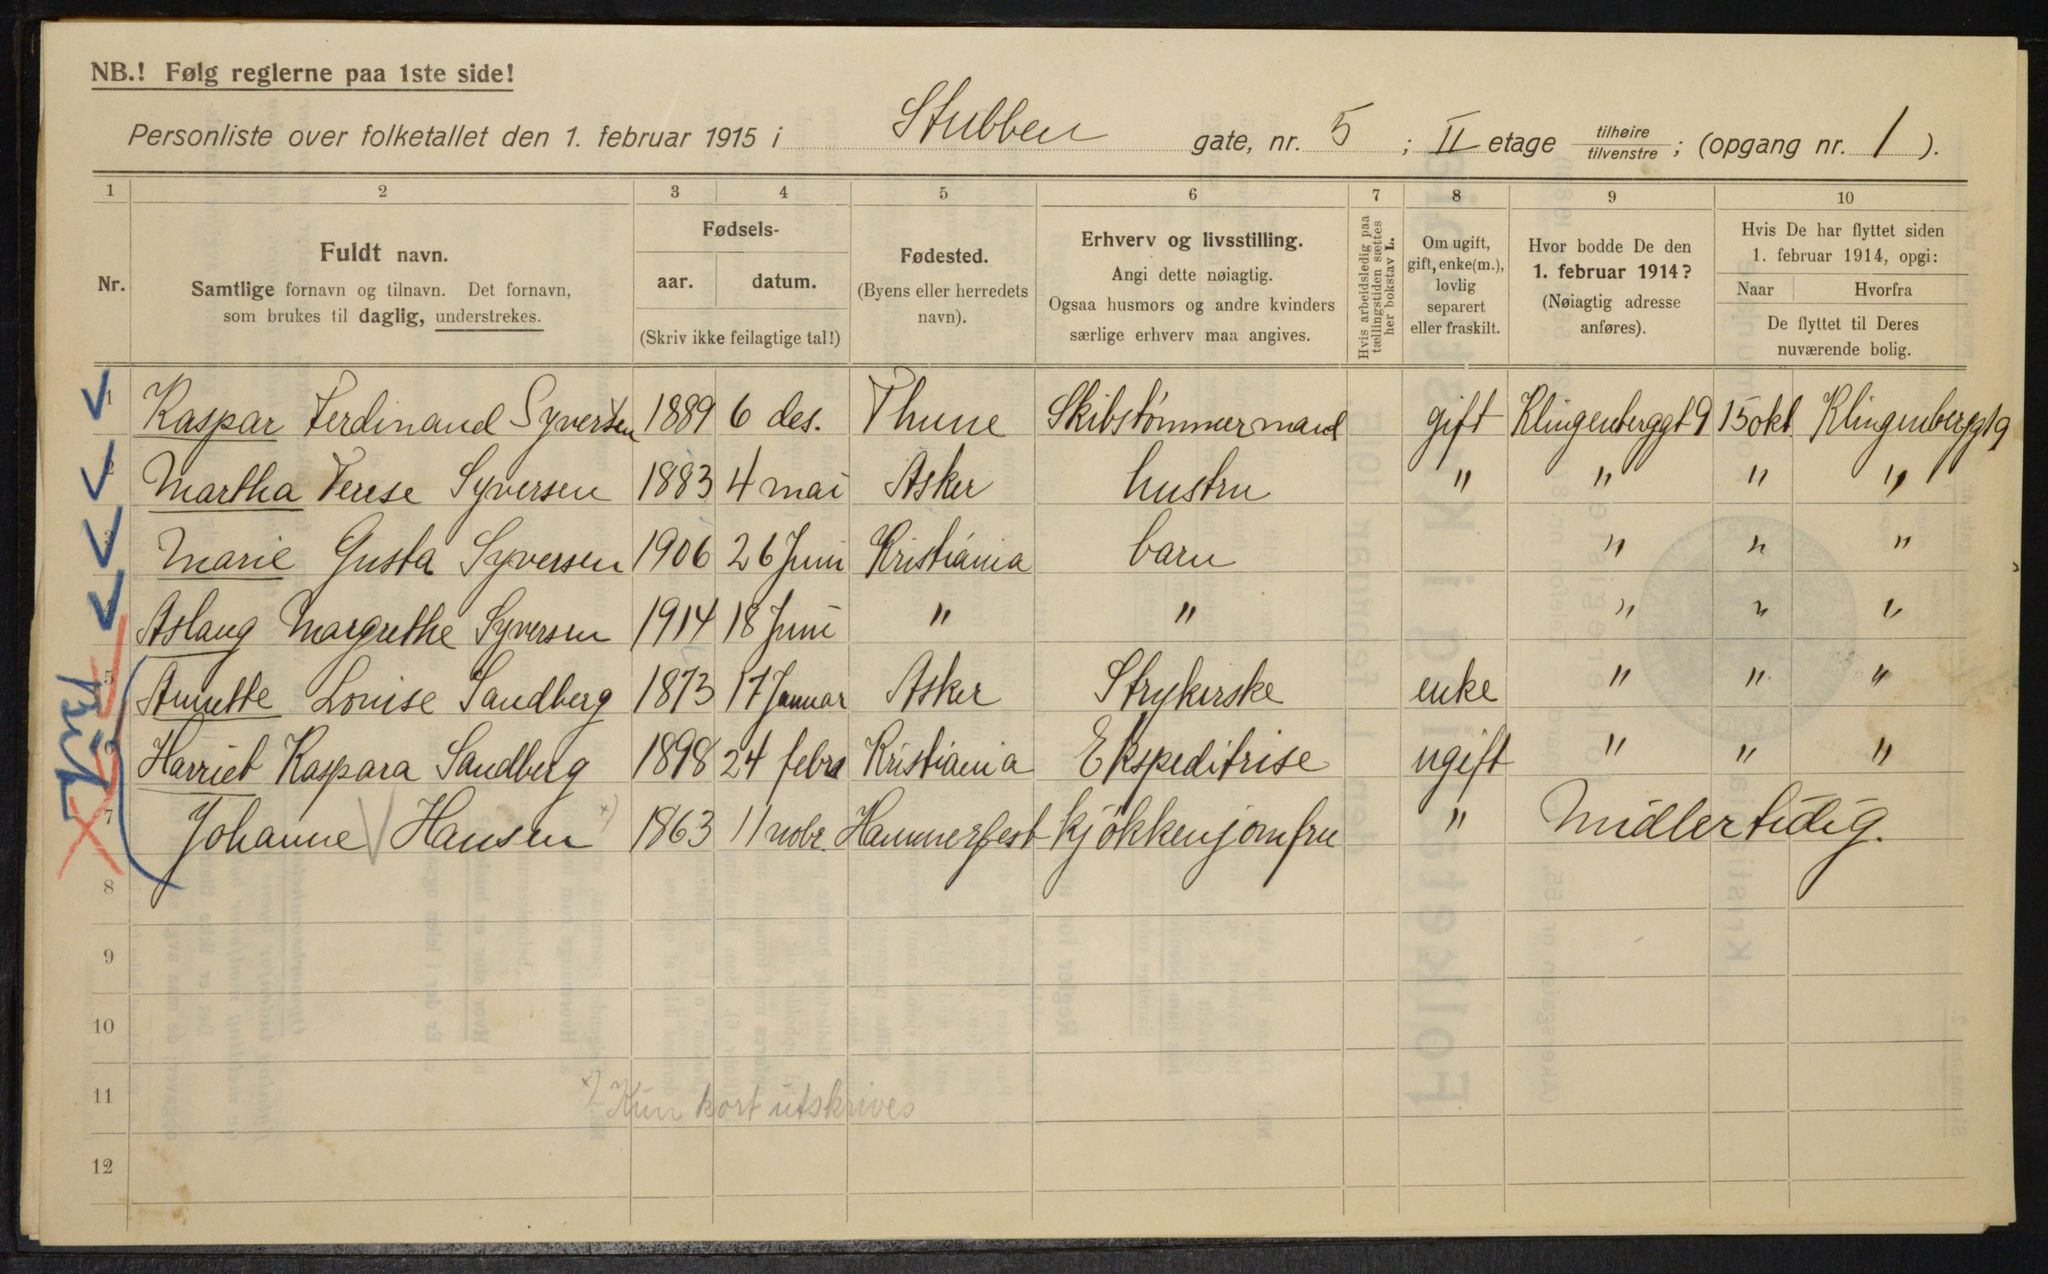 NB.! Følg reglerne paa 1ste side!
Personliste over folketallet den 1. februar 1915 i Stubben gate, nr. 5 ; II etage tilhøire / tilvenstre ; (opgang nr. 1 ).
1 2 3 4 5 6 7 8 9 10
Nr.
Fuldt navn.
Samtlige fornavn og tilnavn. Det fornavn,
som brukes til daglig, understrekes.
Fødsels-
aar. datum.
(Skriv ikke feilagtige tal!)
Fødested.
(Byens eller herredets
navn).
Erhverv og livsstilling.
Angi dette nøiagtig.
Ogsaa husmors og andre kvinders
særlige erhverv maa angives.
Hvis arbeidsledig paa
tællingstiden sættes
her bokstav L.
Om ugift,
gift, enke(m.),
lovlig
separert
eller fraskilt.
Hvor bodde De den
1. februar 1914?
(Nøiagtig adresse
anføres).
Hvis De har flyttet siden
1. februar 1914, opgi:
Naar Hvorfra
De flyttet til Deres
nuværende bolig.
1 Kaspar Ferdinand Syversen 1889 6 des. Thune Skibstømmermand gift Klingenberggt 9 15 okt. Klingenberggt 9
2 Martha Terese Syversen 1883 4 mai Asker hustru " " " "
3 Marie Gusta Syversen 1906 26 Juni Kristiania barn " " "
4 Aslaug Margrethe Syversen 1914 18 Juni " " " " "
5 Annette Louise Sandberg 1873 17 Januar Asker Strykerske enke " " "
6 Harriet Kaspara Sandberg 1898 24 febra Kristiania Ekspeditrise ugift " " "
7 Johanne Hansen x) 1863 11 nobr. Hammerfest kjøkkenjomfru " Midlertidig.
8
9
10
11
x) Kun kort utskrives
12